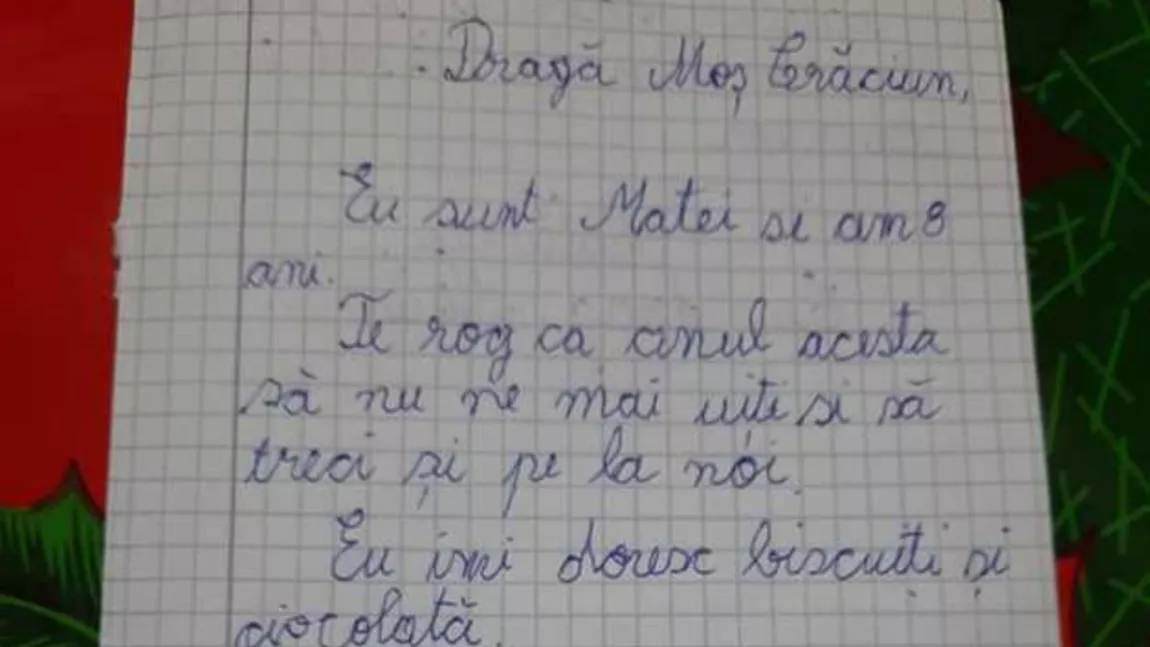 Dragă Moș Crăciun,
Eu sunt Matei si am 8
ani.
Te rog ca anul acesta
să nu ne mai uiți si să
treci și pe la noi.
Eu imi doresc biscuiți și
ciocolată.